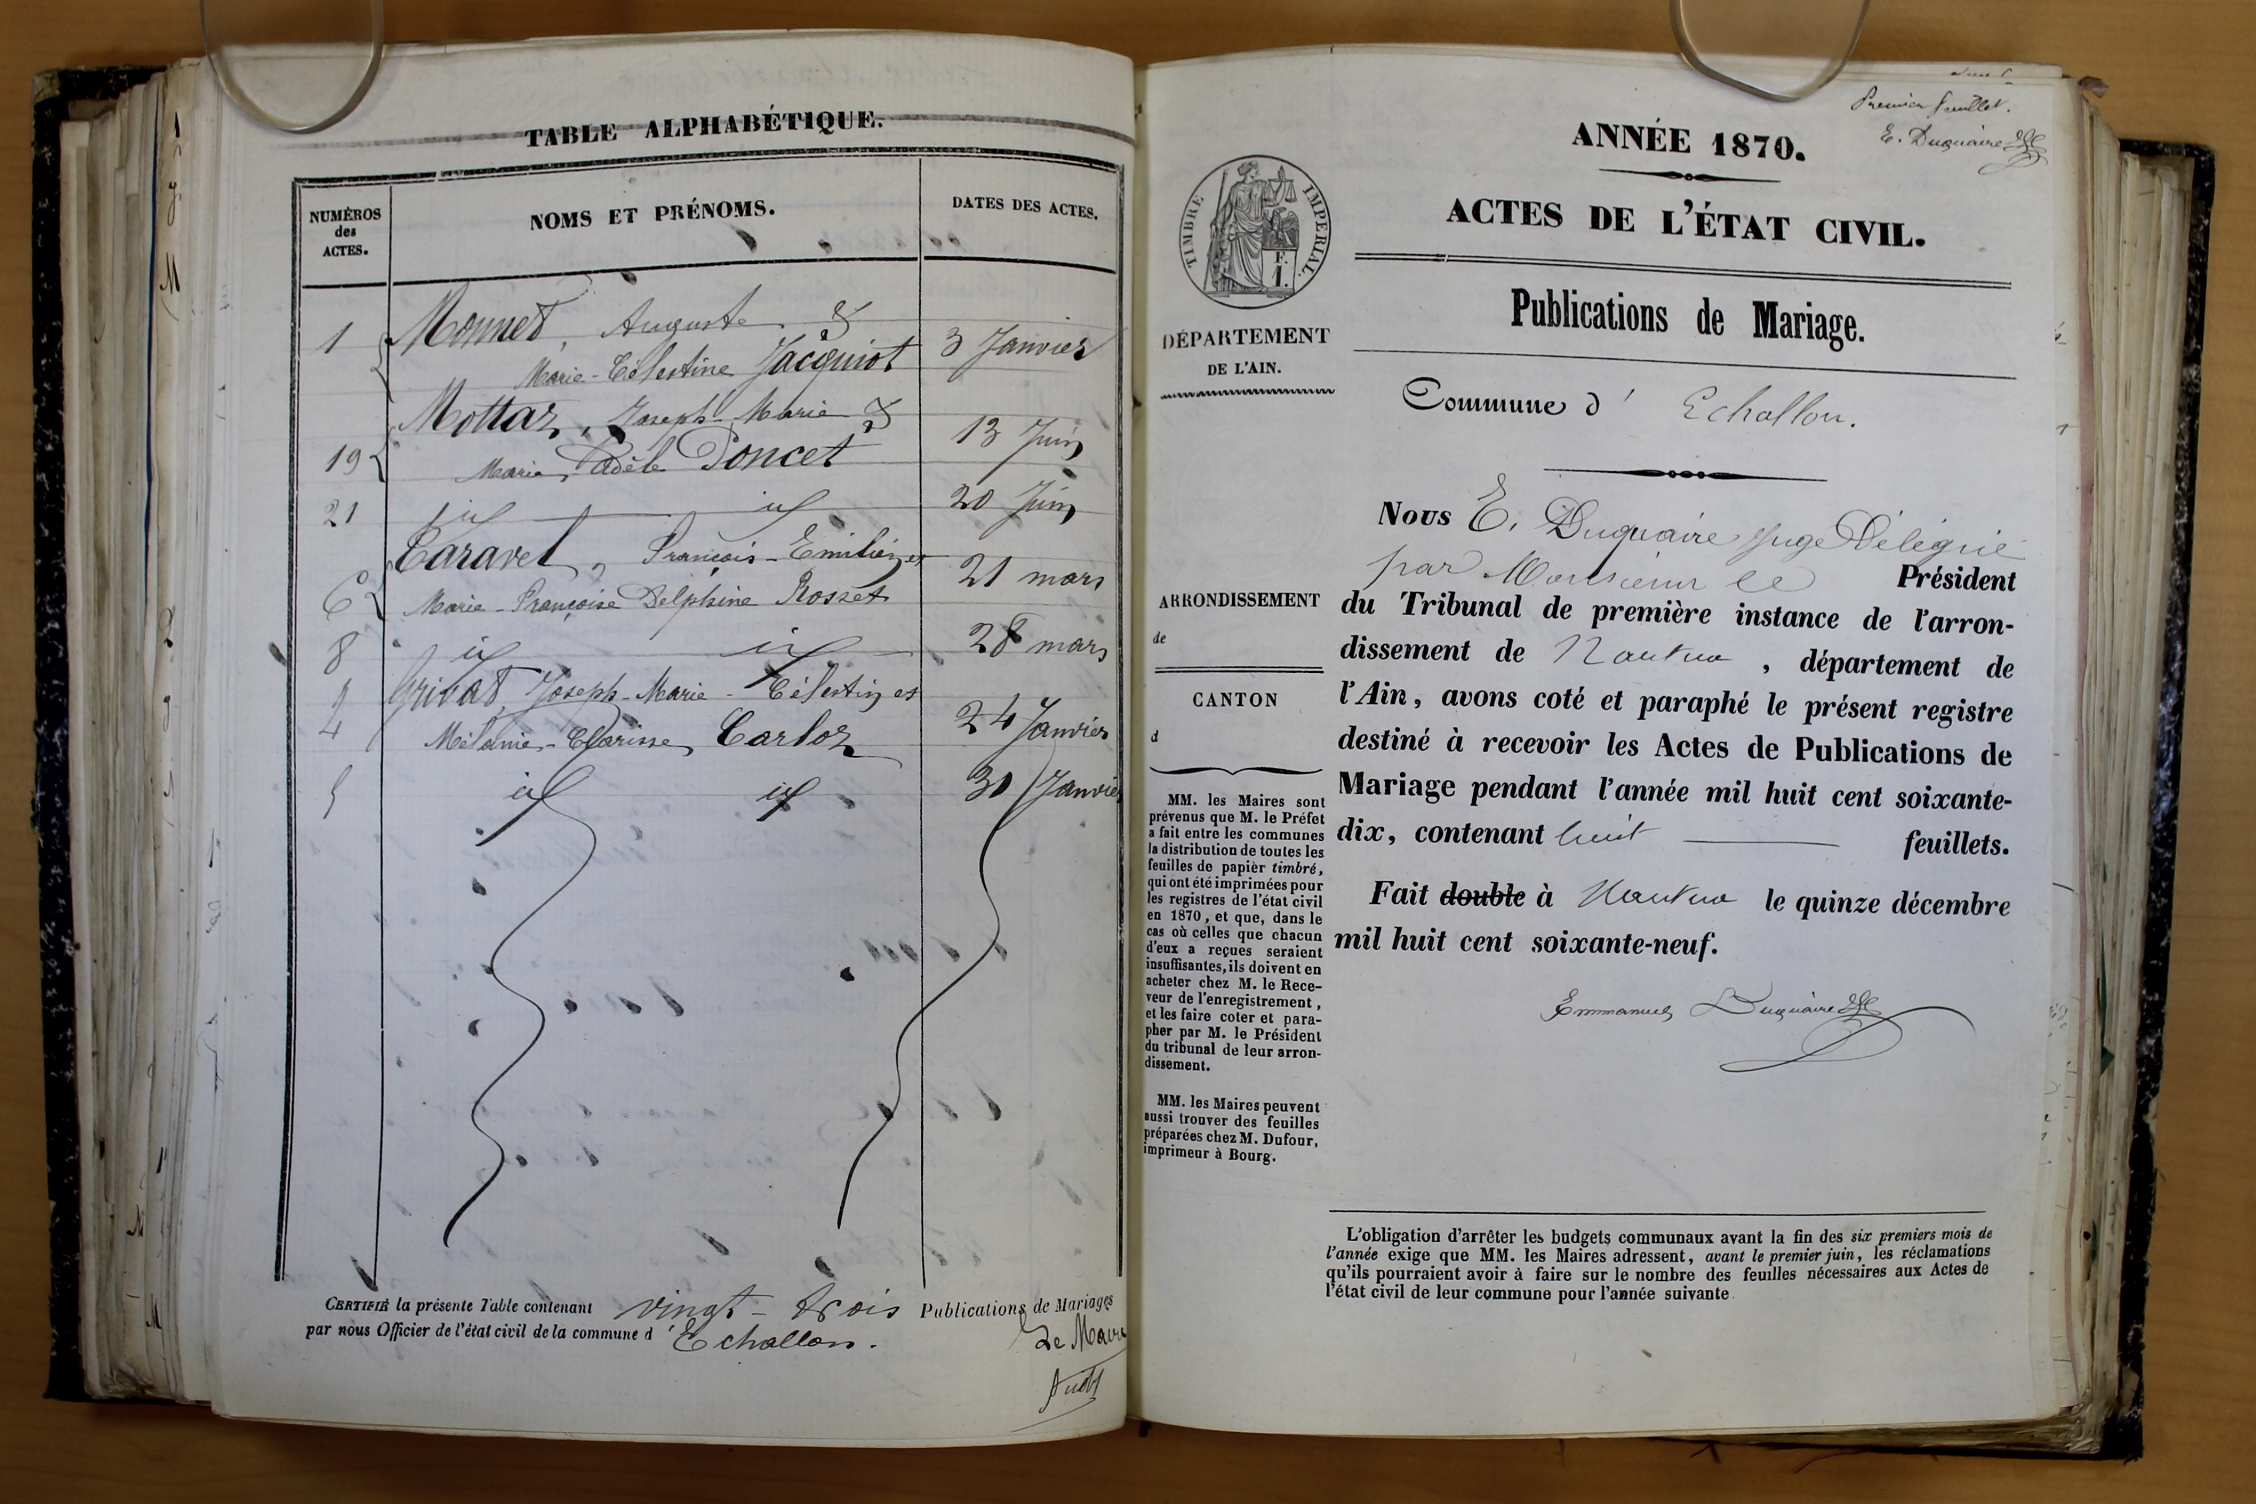 TABLE ALPHABÉTIQUE.
NUMÉROS
des
ACTES.
NOMS ET PRÉNOMS.
DATES DES ACTES.
1 Monnet, Auguste &
Marie-Célestine Jacquiot 3 Janvier
Mottaz, Joseph-Marie &
19 Marie, Adèle Poncet 13 Juin
21 id id 20 Juin
Caravet, François-Emilien et
6 Marie-Françoise Delphine Rosset 21 mars
8 id id 28 mars
Grivat, Joseph-Marie-Célestin et
4 Mélanie-Clarisse, Carloz 24 Janvier
5 id id 30 Janvier
CERTIFIÉ la présente Table contenant vingt-trois Publications de Mariages
par nous Officier de l'état civil de la commune d'Echallon.
Le Maire
Premier feuillet.
E. Duquaire
ANNÉE 1870.
ACTES DE L'ÉTAT CIVIL.
TIMBRE IMPERIAL.
F.
1.
Publications de Mariage.
DÉPARTEMENT
DE L'AIN.
Commune d' Echallon.
Nous E. Duquaire Juge Délégué
par Monsieur le Président
du Tribunal de première instance de l'arron-
dissement de Nantua, département de
l'Ain, avons coté et paraphé le présent registre
destiné à recevoir les Actes de Publications de
Mariage pendant l'année mil huit cent soixante-
dix, contenant huit feuillets.
Fait double à Nantua le quinze décembre
mil huit cent soixante-neuf.
Emmanuel Duquaire
ARRONDISSEMENT
de
CANTON
d
MM. les Maires sont
prévenus que M. le Préfet
a fait entre les communes
la distribution de toutes les
feuilles de papier timbré,
qui ont été imprimées pour
les registres de l'état civil
en 1870, et que, dans le
cas où celles que chacun
d'eux a reçues seraient
insuffisantes, ils doivent en
acheter chez M. le Rece-
veur de l'enregistrement,
et les faire coter et para-
pher par M. le Président
du tribunal de leur arron-
dissement.
MM. les Maires peuvent
aussi trouver des feuilles
préparées chez M. Dufour,
imprimeur à Bourg.
L'obligation d'arrêter les budgets communaux avant la fin des six premiers mois de
l'année exige que MM. les Maires adressent, avant le premier juin, les réclamations
qu'ils pourraient avoir à faire sur le nombre des feuilles nécessaires aux Actes de
l'état civil de leur commune pour l'année suivante.